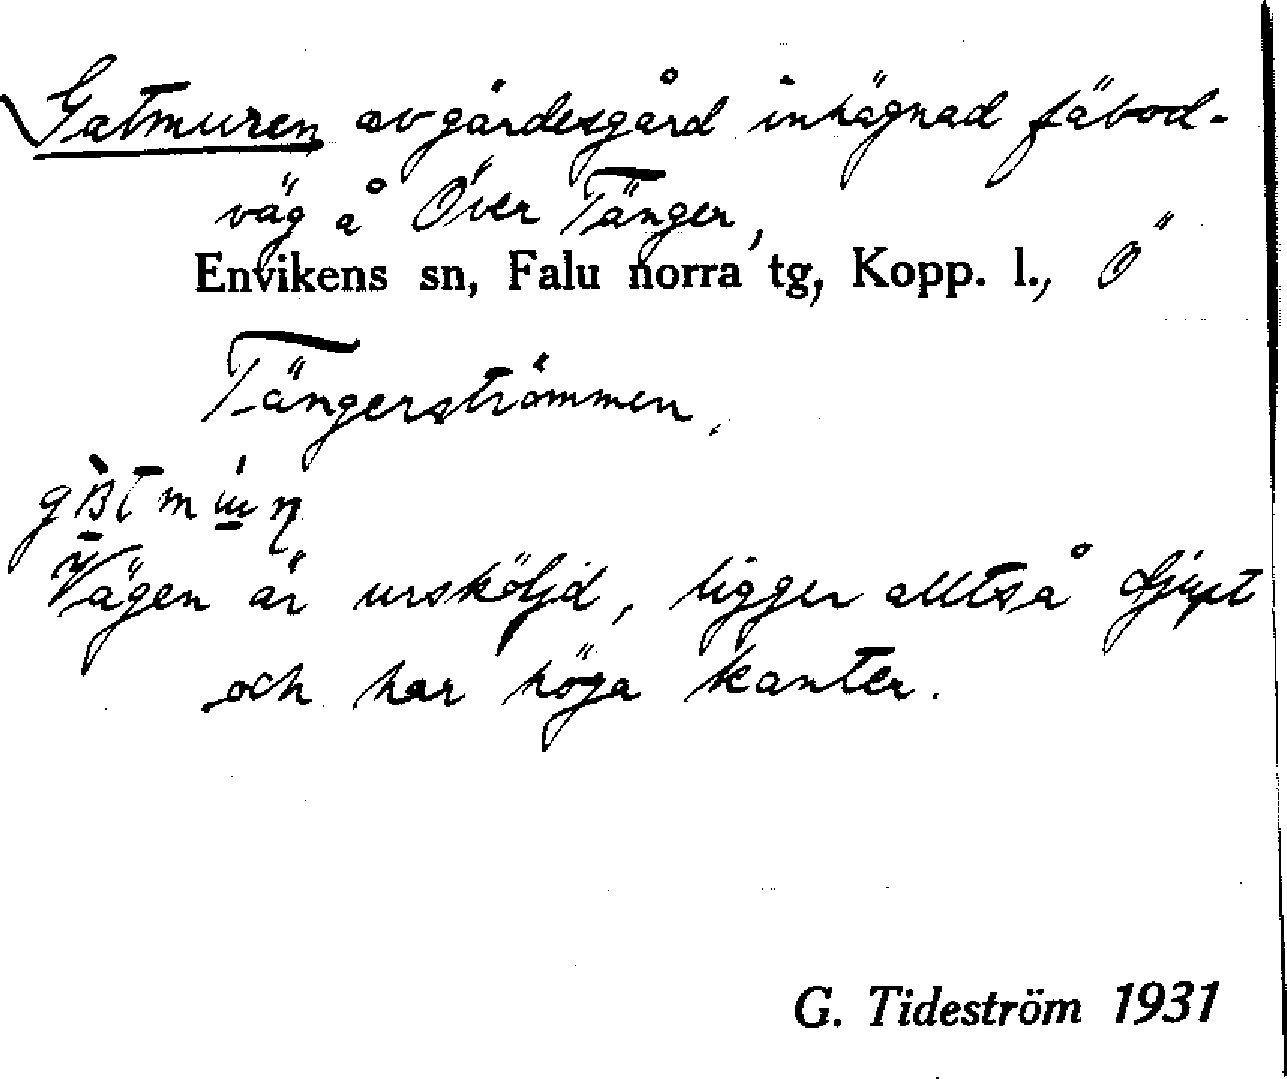 Gatmuren av gärdesgård inhägnad fäbod-
väg å Över Tänger,
Envikens sn, Falu norra tg, Kopp. l., Ö
Tängerströmmen.
Vägen är ursköljd, ligger alltså djupt
och har höga kanter.
G. Tideström 1931